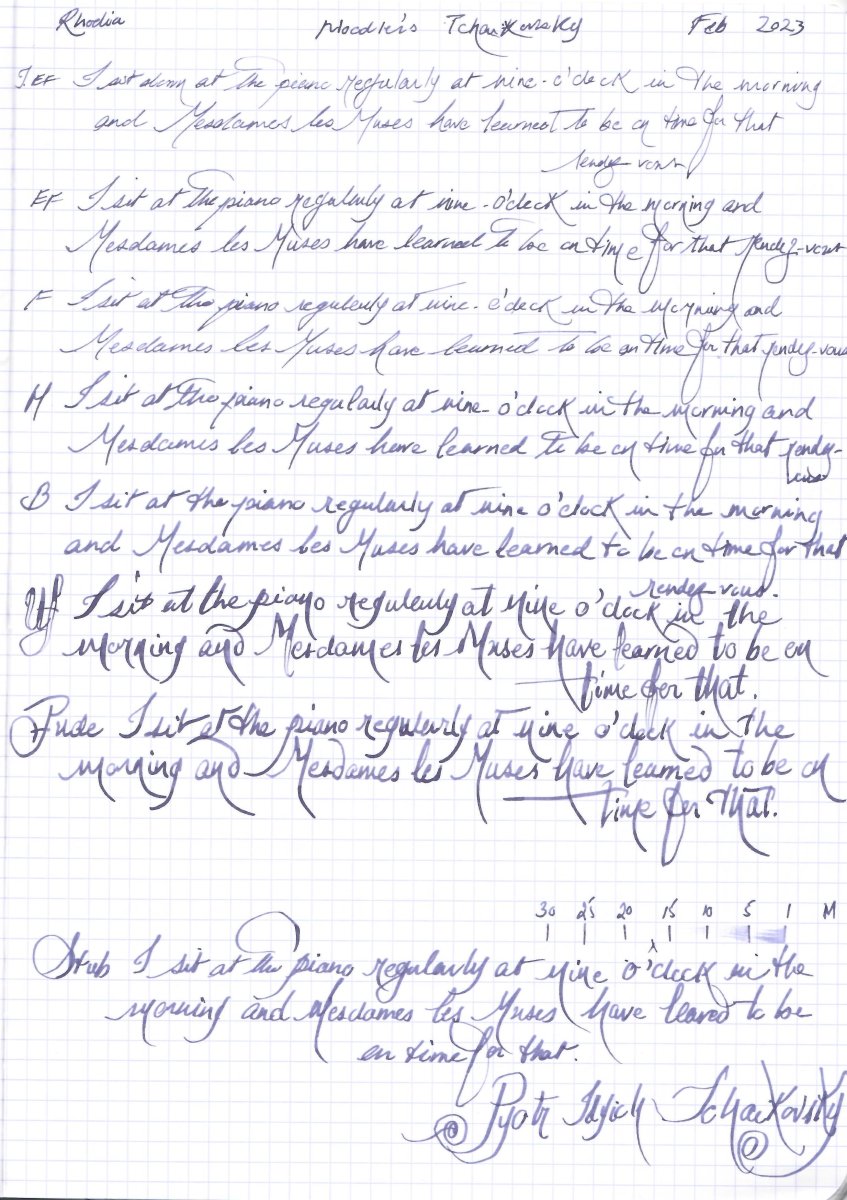 Rhodia Noodler's Tchaikovsky Feb 2023
J. EF I sit down at the piano regularly at nine-o'clock in the morning
and Mesdames les Muses have learned to be on time for that
rendez-vous
EF I sit at the piano regularly at nine-o'clock in the morning and
Mesdames les Muses have learned to be on time for that rendez-vous
F I sit at the piano regularly at nine-o'clock in the morning and
Mesdames les Muses have learned to be on time for that rendez-vous
M I sit at the piano regularly at nine-o'clock in the morning and
Mesdames les Muses have learned to be on time for that rendez-
vous
B I sit at the piano regularly at nine o'clock in the morning
and Mesdames les Muses have learned to be on time for that
rendez-vous.
I sit at the piano regularly at nine o'clock in the
morning and Mesdames les Muses have learned to be on
time for that.
Fude I sit at the piano regularly at nine o'clock in the
morning and Mesdames les Muses have learned to be on
time for that.
30 25 20 15 10 5 1 M
Stub I sit at the piano regularly at nine o'clock in the
morning and Mesdames les Muses have leared to be
on time for that.
Pyotr Ilyich Tchaikovsky